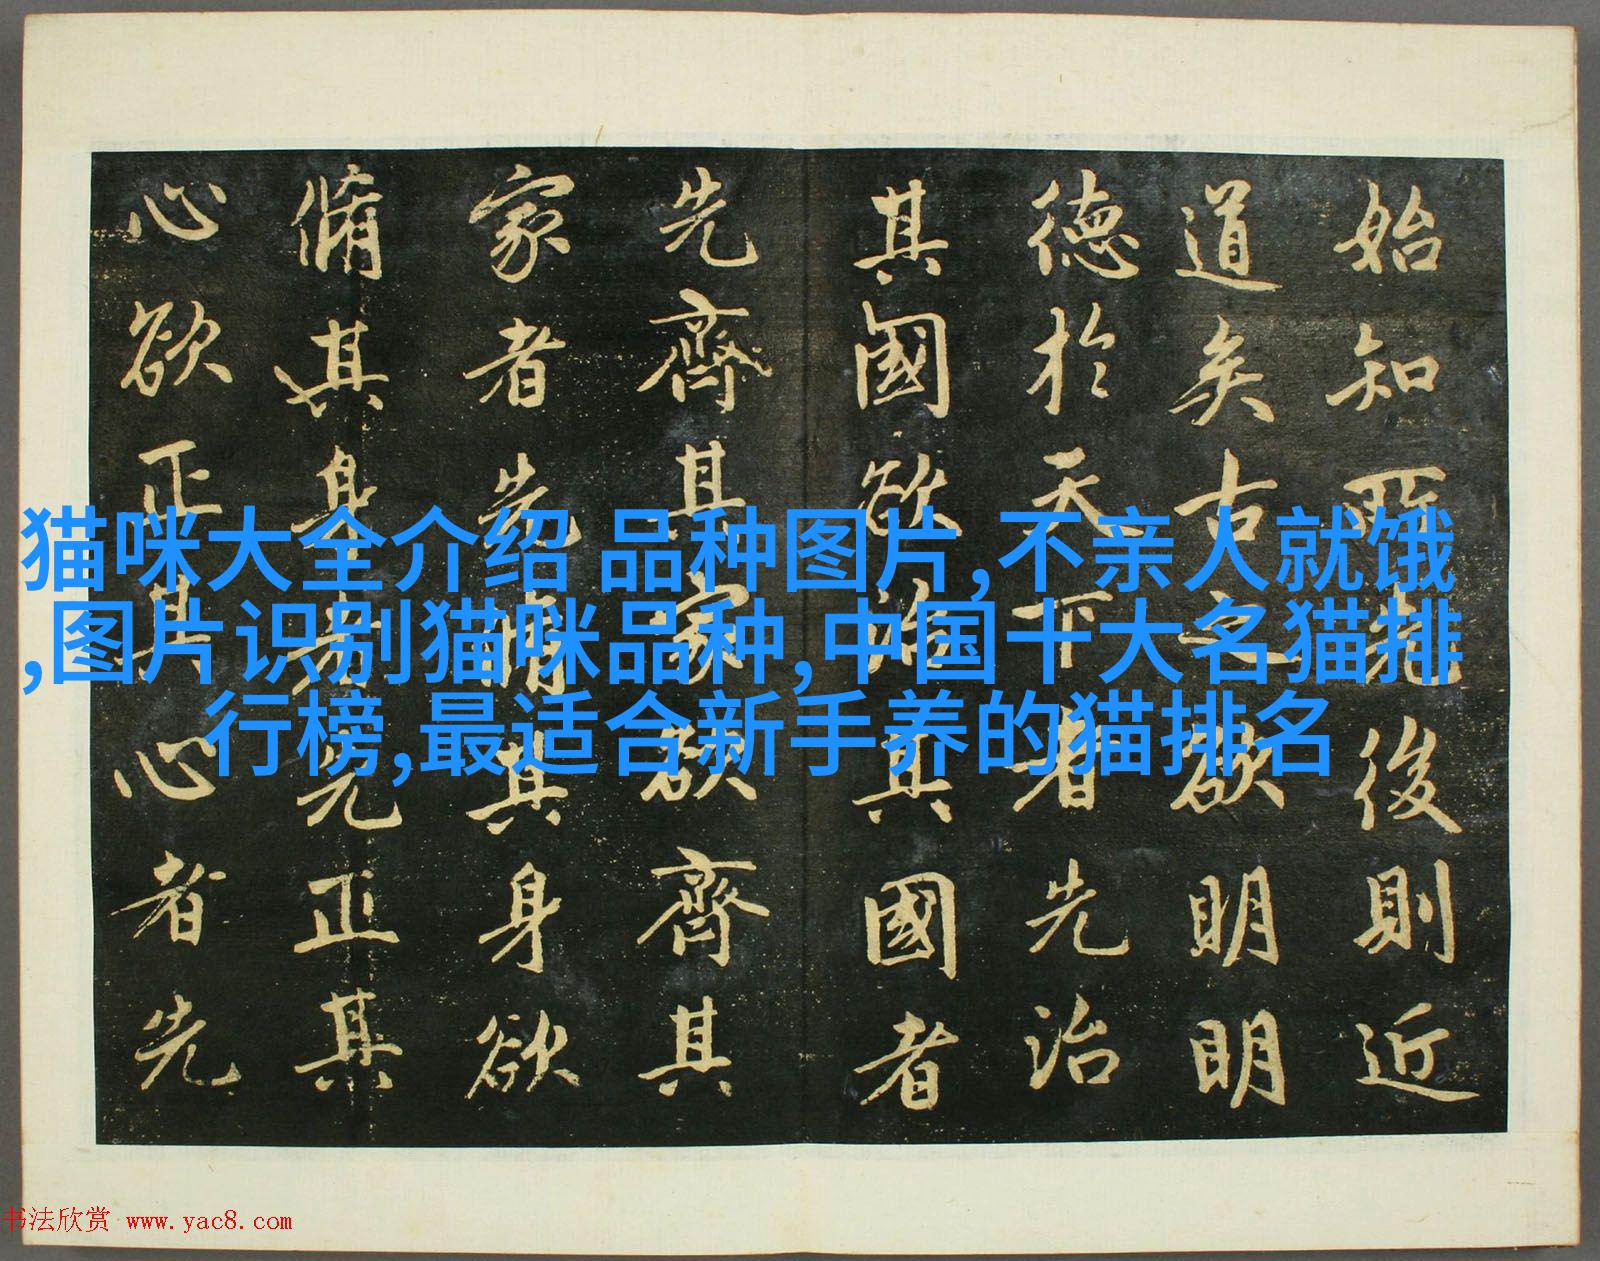 始知所先後則近
道矣古之欲明明
德於天下者先治
其國欲治其國者
先齊其家欲齊其
家者先脩其身欲
脩其身者先正其
心欲正其心者先
猫咪大全介绍 品种图片,不亲人就饿
,图片识别猫咪品种,中国十大名猫排
行榜,最适合新手养的猫排名
书法欣赏 www.yac8.com